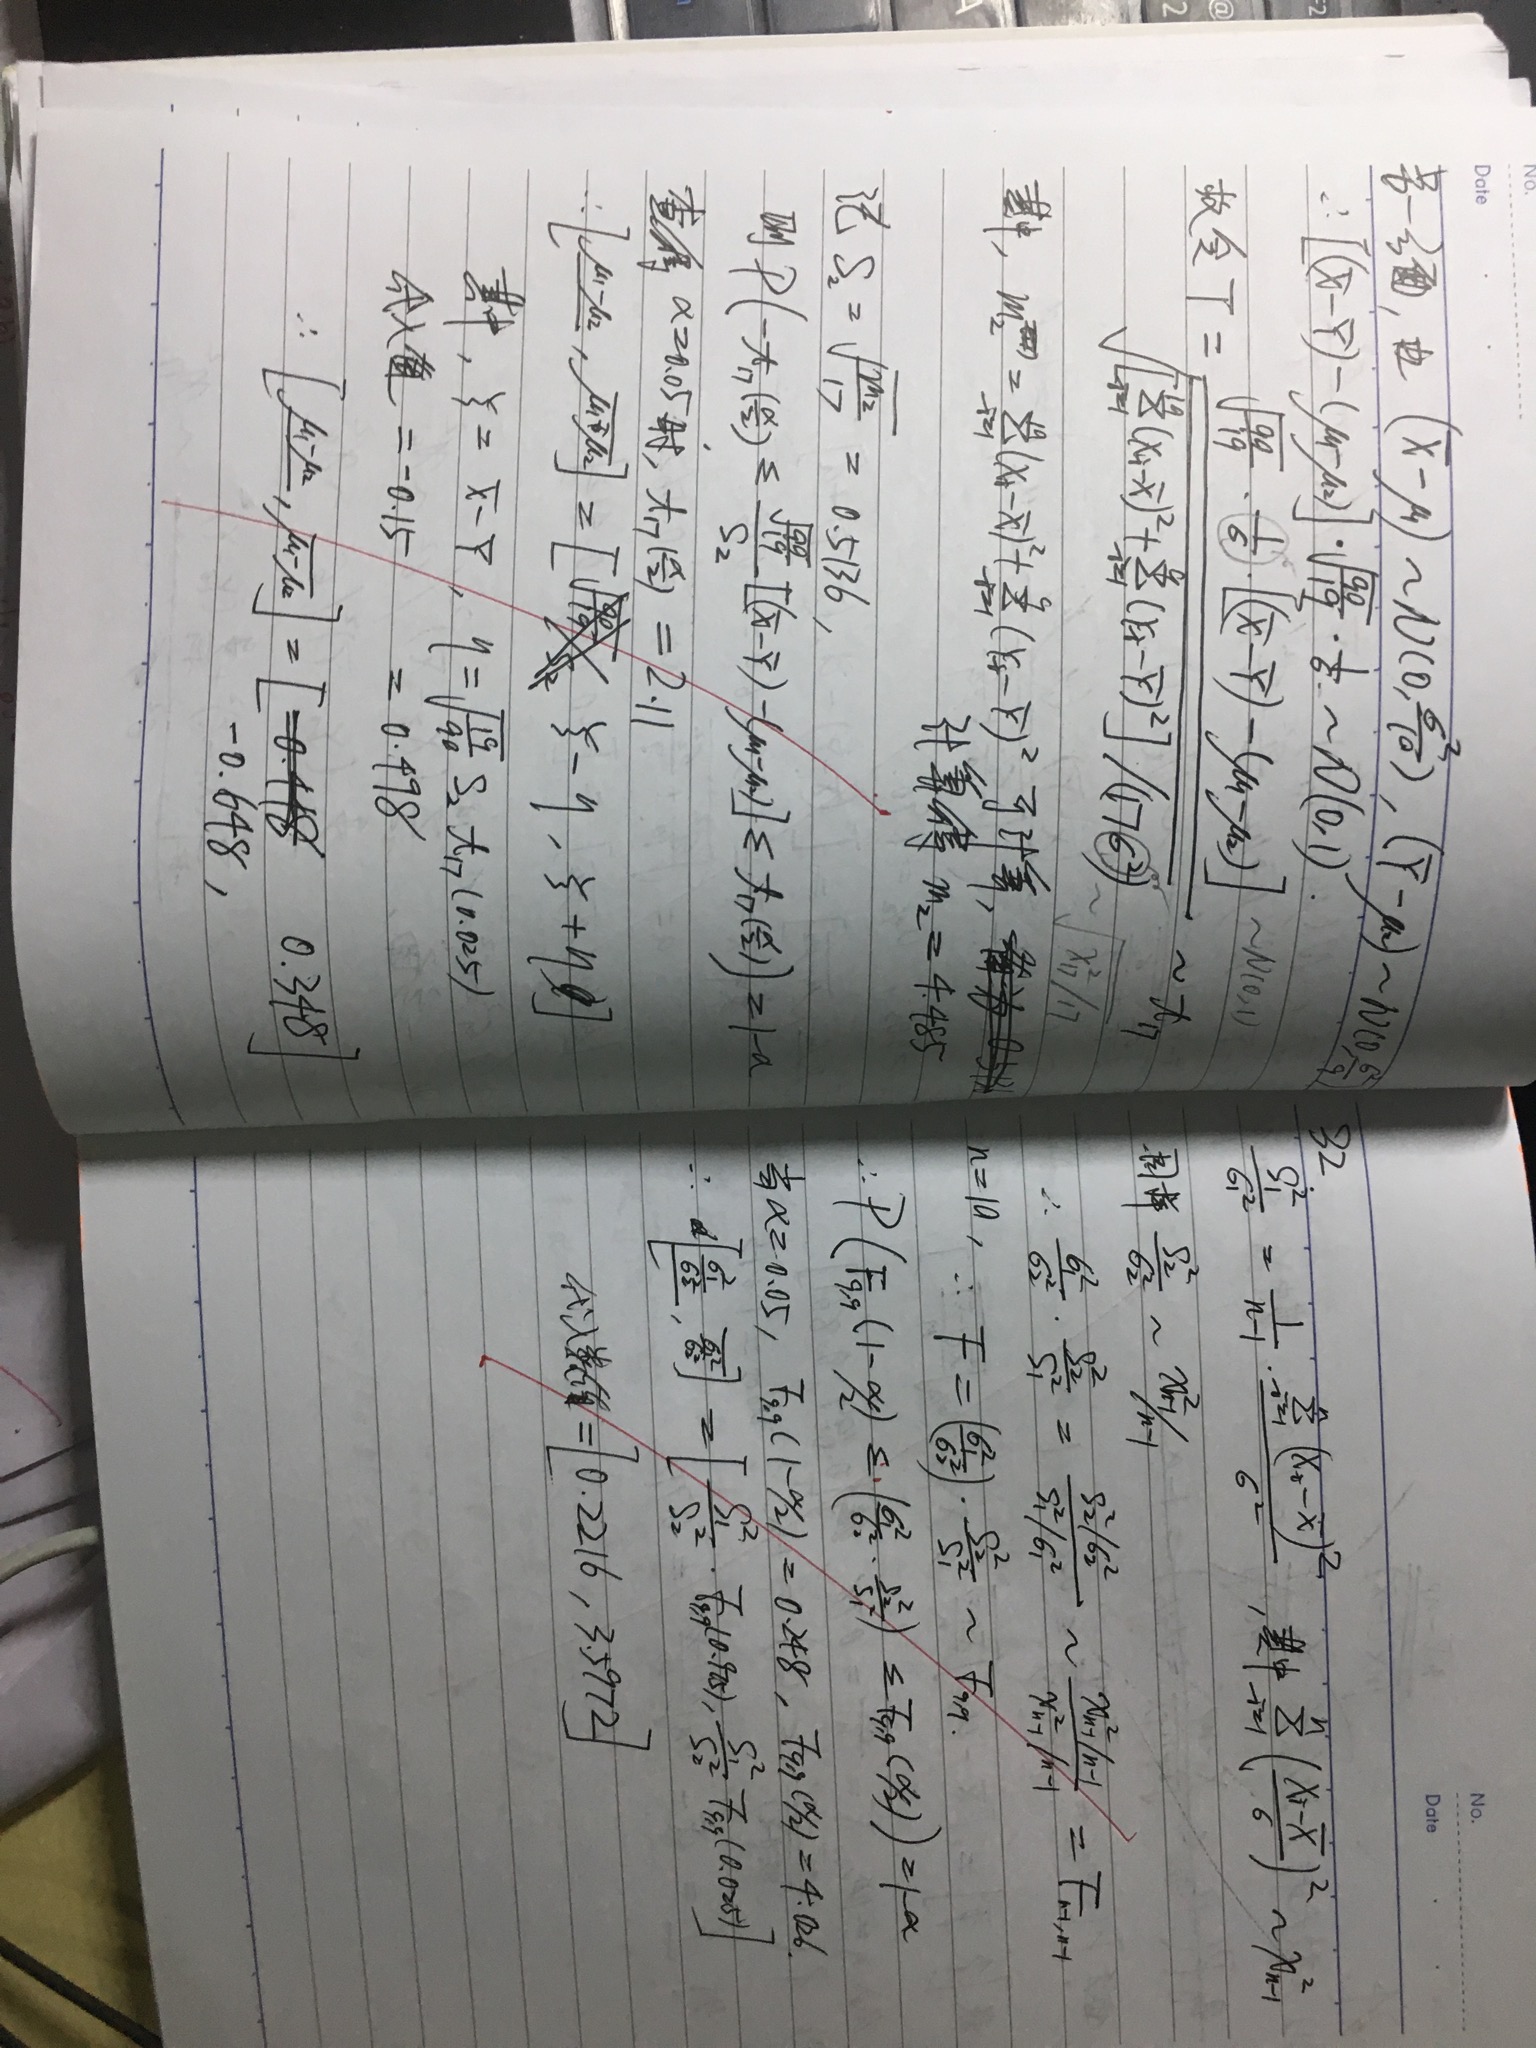 No.
Date
另一方面, 由 (X̄-μ₁) ~ N(0, σ²/10), (Ȳ-μ₂) ~ N(0, σ²/9)
∴ [(X̄-Ȳ)-(μ₁-μ₂)]·√(90/19)·1/σ ~ N(0,1).
故令 T = √(90/19)·(1/σ)·[(X̄-Ȳ)-(μ₁-μ₂)] ~N(0,1)
√([Σᵢ₌₁¹⁰(Xᵢ-X̄)²+Σᵢ₌₁⁹(Yᵢ-Ȳ)²]/(17σ²)) ~ t₁₇
~ √(χ²₁₇/17)
其中, m₂ = Σᵢ₌₁¹⁰(Xᵢ-X̄)²+Σᵢ₌₁⁹(Yᵢ-Ȳ)² 可计算,
计算得 m₂=4.485
记 S₂ = √(m₂/17) = 0.5136,
则 P(-t₁₇(α/2) ≤ √(90/19)/S₂ [(X̄-Ȳ)-(μ₁-μ₂)] ≤ t₁₇(α/2)) = 1-α
查得 α=0.05时, t₁₇(α/2) = 2.11
∴ [μ₁-μ₂, μ₁-μ₂] = [ξ-η, ξ+η]
其中, ξ = X̄-Ȳ, η = √(19/90) S₂ t₁₇(0.025)
代入值 = -0.15 = 0.498
∴ [μ₁-μ₂, μ₁-μ₂] = [-0.648, 0.348]
No.
Date
32
S₁²/σ₁² = 1/(n-1)·Σᵢ₌₁ⁿ(Xᵢ-X̄)²/σ², 其中 Σᵢ₌₁ⁿ((Xᵢ-X̄)/σ)² ~ χ²ₙ₋₁
同样 S₂²/σ₂² ~ χ²ₙ₋₁/n-1
∴ σ₁²/σ₂²·S₂²/S₁² = (S₂²/σ₂²)/(S₁²/σ₁²) ~ (χ²ₙ₋₁/n-1)/(χ²ₙ₋₁/n-1) = Fₙ₋₁,ₙ₋₁
n=10, ∴ F = (σ₁²/σ₂²)·S₂²/S₁² ~ F₉,₉.
∴ P(F₉,₉(1-α/2) ≤ (σ₁²/σ₂²·S₂²/S₁²) ≤ F₉,₉(α/2)) = 1-α
当α=0.05, F₉,₉(1-α/2)=0.248, F₉,₉(α/2)=4.026.
∴ [σ₁²/σ₂², σ₁²/σ₂²] = [S₁²/S₂²·F₉,₉(0.975), S₁²/S₂² F₉,₉(0.025)]
代入数值=[0.2216, 3.5972]